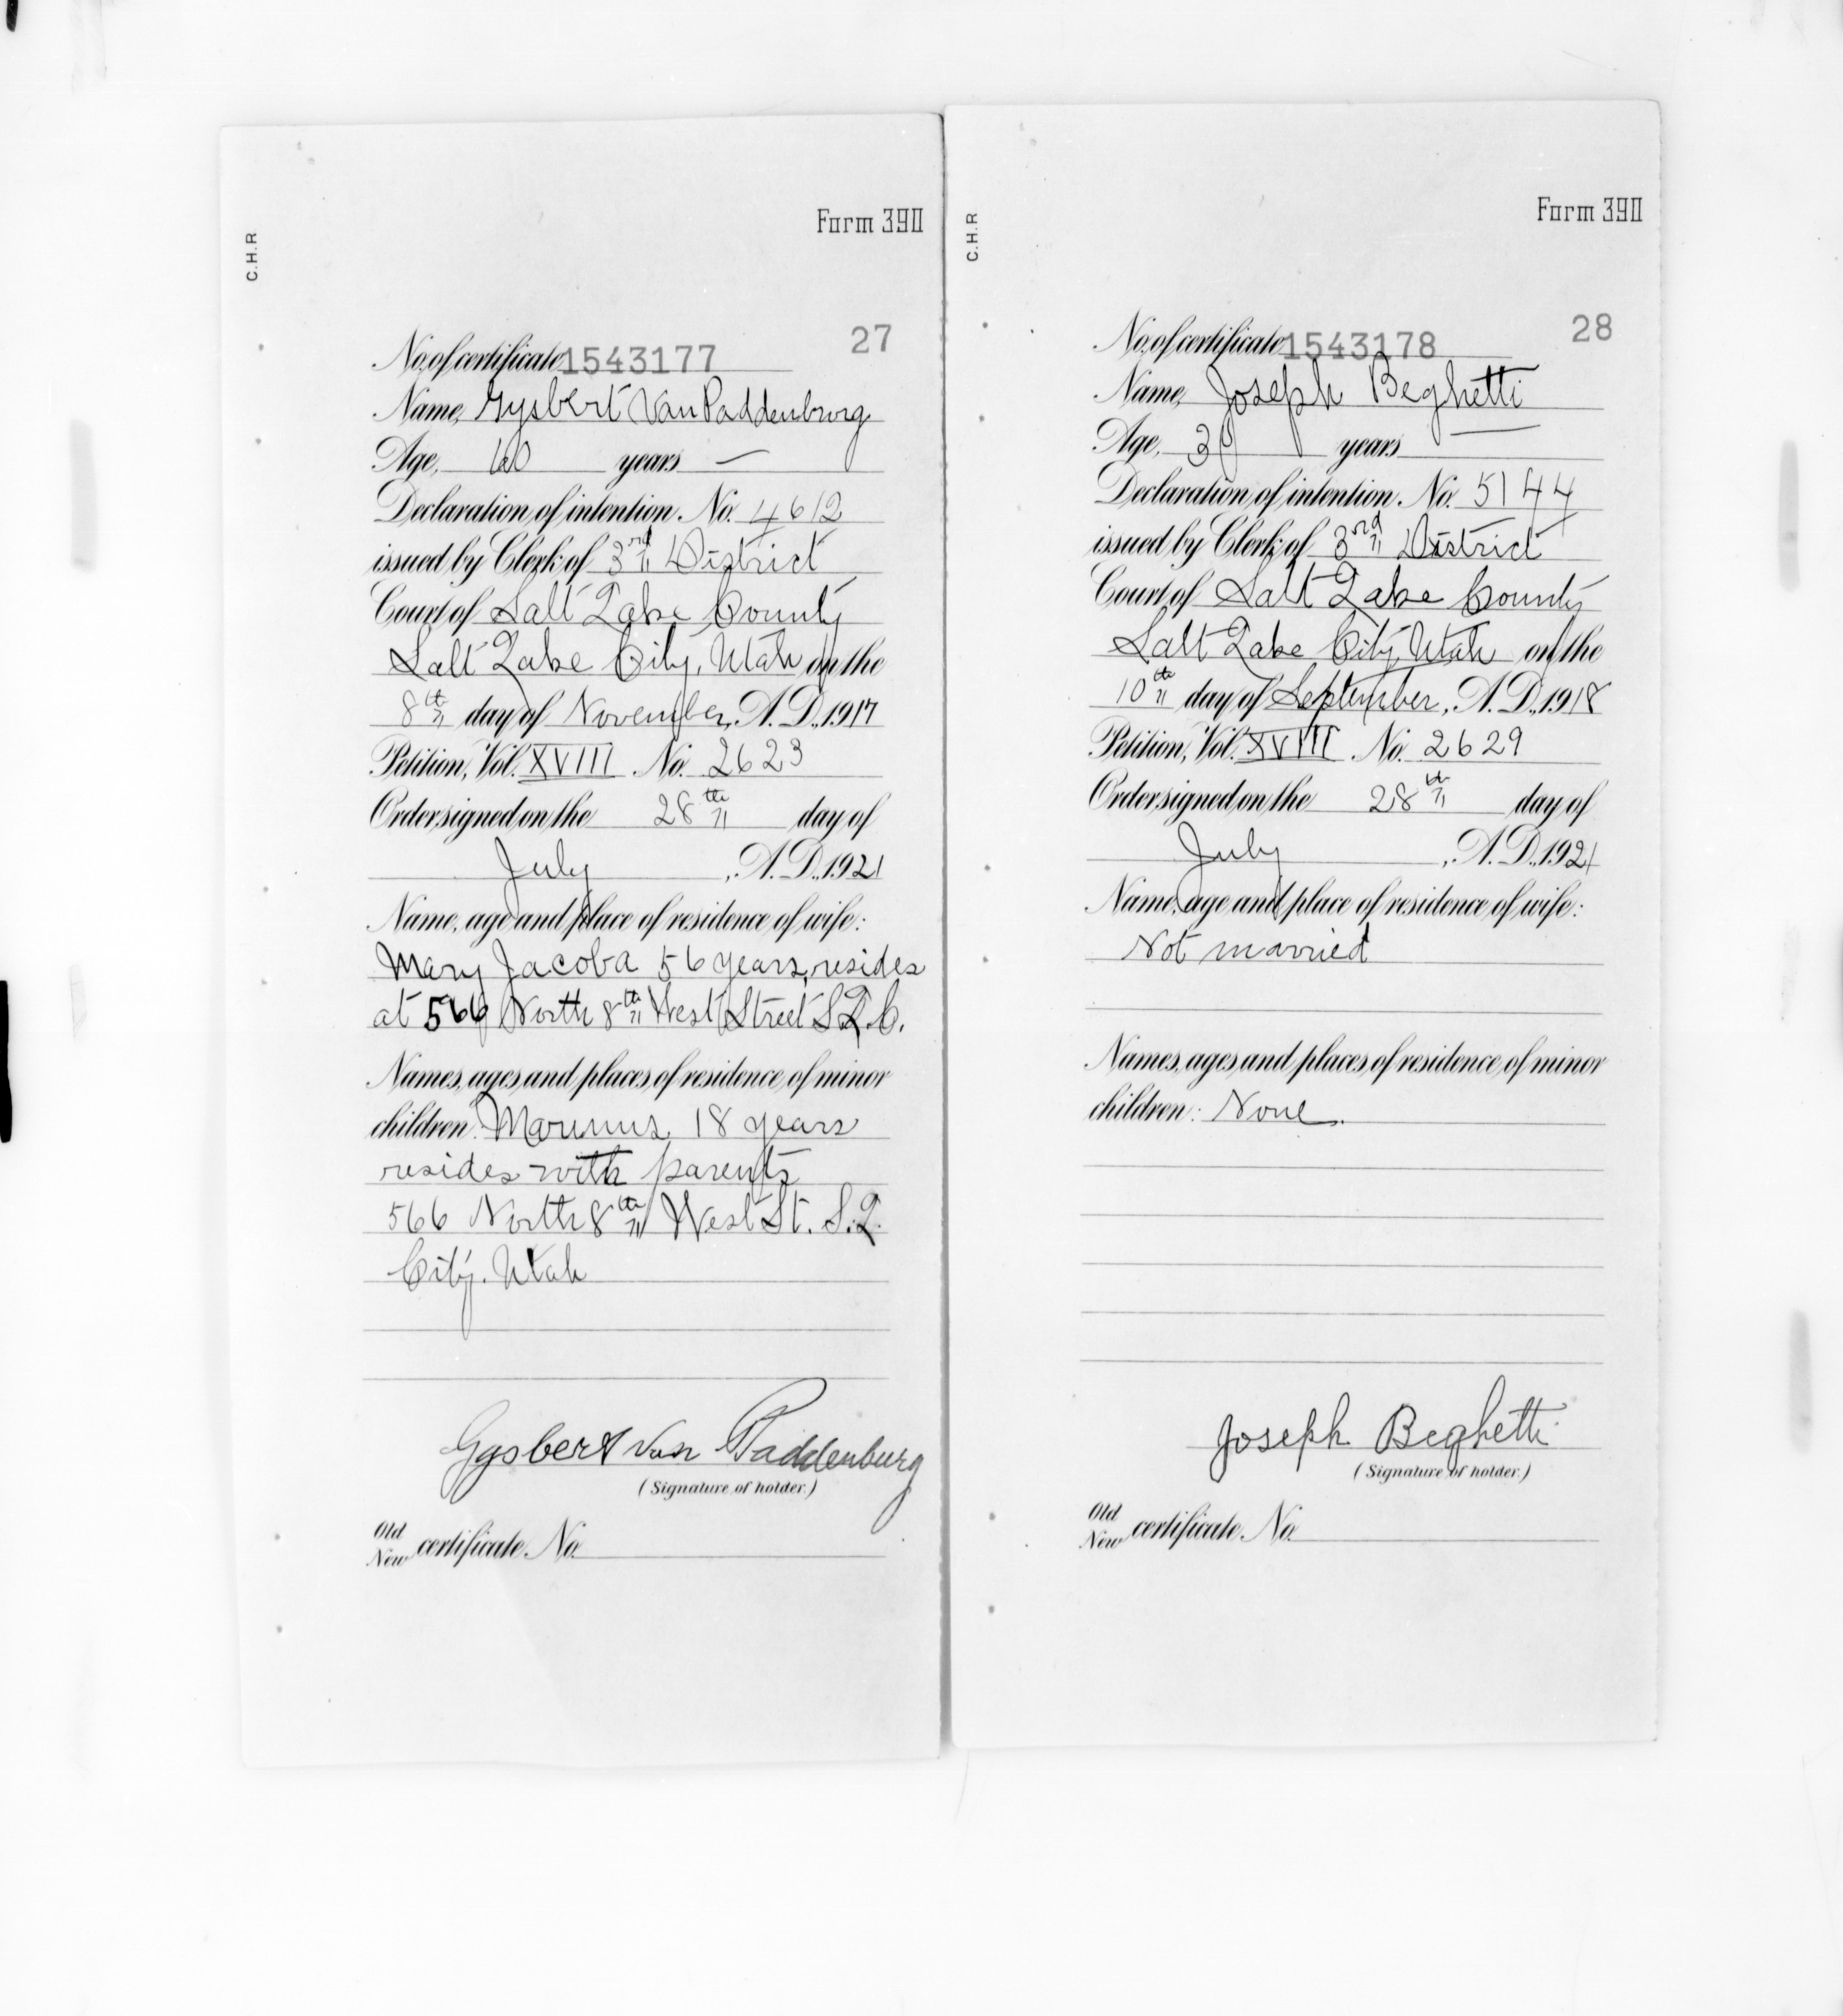 Form 390
C.H.R
27
No. of certificate 1543177
Name, Gysbert Van Paddenburg
Age, 60 years —
Declaration of intention, No. 4612
issued by Clerk of 3rd District
Court of Salt Lake County
Salt Lake City, Utah on the
8th day of November, A. D., 1917
Petition, Vol. XVIII No. 2623
Order signed on the 28th day of
July, A. D., 1921
Name, age and place of residence of wife:
Mary Jacoba 56 years, resides
at 566 North 8th West Street S.L.C.
Names, ages and places of residence of minor
children: Marinus 18 years
resides with parents
566 North 8th West St. S.L.
City. Utah
Gysbert van Paddenburg
(Signature of holder.)
Old
New certificate No.
Form 390
C.H.R
28
No. of certificate 1543178
Name, Joseph Beghetti
Age, 30 years —
Declaration of intention, No. 5144
issued by Clerk of 3rd District
Court of Salt Lake County
Salt Lake City, Utah on the
10th day of September, A. D., 1918
Petition, Vol. XVIII No. 2629
Order signed on the 28th day of
July, A. D., 1921
Name, age and place of residence of wife:
Not married
Names, ages and places of residence of minor
children: None.
Joseph Beghetti
(Signature of holder.)
Old
New certificate No.